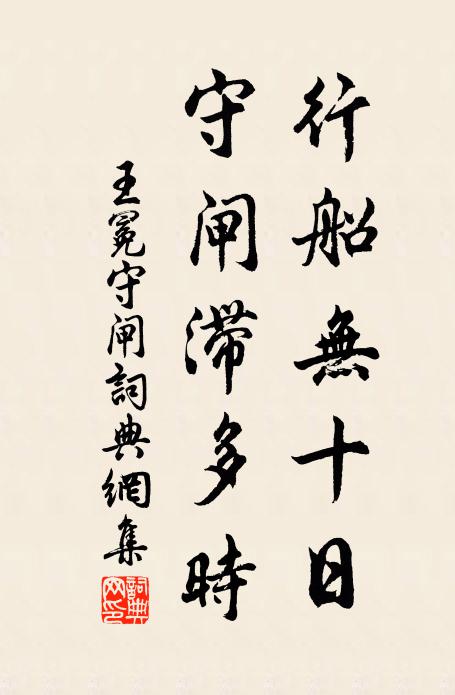 行船無十日
守闸滯多時
王冕守闸詞典網集
詞典網印